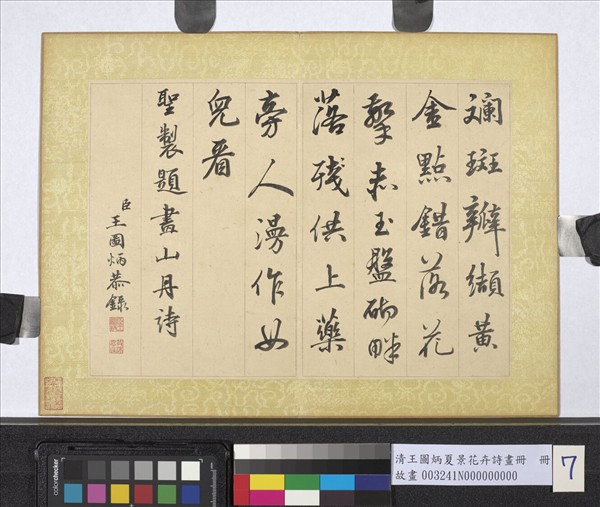 斕斑瓣纈黃
金點錯落花
擎赤玉盤砌畔
落殘供上藥
旁人漫作女
兒看
聖製題畫山丹詩
臣王圖炳恭錄
colorchecker
清王圖炳夏景花卉詩畫冊 冊
故畫 003241N000000000
7